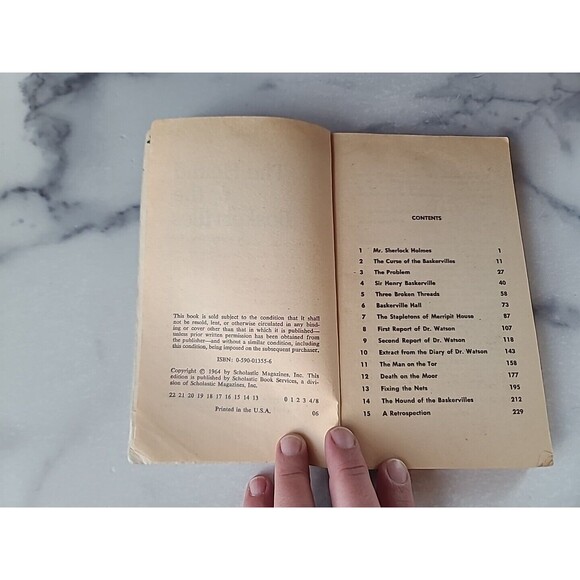 This book is sold subject to the condition that it shall
not be resold, lent, or otherwise circulated in any bind-
ing or cover other than that in which it is published—
unless prior written permission has been obtained from
the publisher—and without a similar condition, including
this condition, being imposed on the subsequent purchaser.
ISBN: 0-590-01355-6
Copyright © 1964 by Scholastic Magazines, Inc. This
edition is published by Scholastic Book Services, a divi-
sion of Scholastic Magazines, Inc.
22 21 20 19 18 17 16 15 14 13 0 1 2 3 4/8
Printed in the U.S.A. 06
CONTENTS
1 Mr. Sherlock Holmes 1
2 The Curse of the Baskervilles 11
3 The Problem 27
4 Sir Henry Baskerville 40
5 Three Broken Threads 58
6 Baskerville Hall 73
7 The Stapletons of Merripit House 87
8 First Report of Dr. Watson 107
9 Second Report of Dr. Watson 118
10 Extract from the Diary of Dr. Watson 143
11 The Man on the Tor 158
12 Death on the Moor 177
13 Fixing the Nets 195
14 The Hound of the Baskervilles 212
15 A Retrospection 229